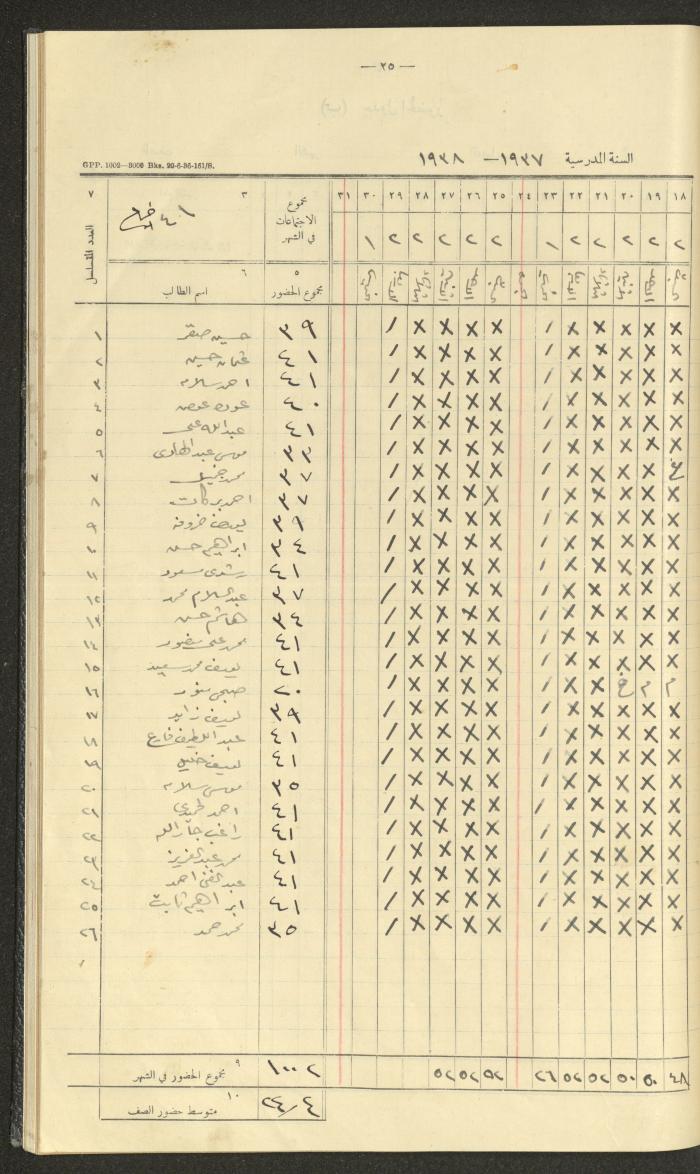 — ٢٥ —
السنة المدرسية ١٩٣٧ — ١٩٣٨
GPP. 1002—3000 Bks. 29-6-36-151/S.
١٨ ١٩ ٢٠ ٢١ ٢٢ ٢٣ ٢٤ ٢٥ ٢٦ ٢٧ ٢٨ ٢٩ ٣٠ ٣١ مجموع الاجتماعات في الشهر ٣ ٤١ ٧
٢ ٢ ٢ ٢ ٢ ١ ٢ ٢ ٢ ٢ ٢ ١
٥ مجموع الحضور ٦ اسم الطالب العدد المتسلسل
X X X X X / X X X X / ٣٩ حسين صقر ١
X X X X X / X X X X / ٤١ عثمان حسين ٢
X X X X X / X X X X / ٤١ احمد سلامه ٣
X X X X X / X X X X / ٤٠ عوده عوض ٤
X X X X X / X X X X / ٤١ عبدالله علي ٥
X X X X X / X X X X / ٣٣ موسى عبدالهادي ٦
غ X X X X / X X X X / ٣٧ محمد ٧
X X X X X / X X X X / ٣٧ احمد بركات ٨
X X X X X / X X X X / ٣٩ يوسف ٩
X X X X X / X X X X / ٣٤ ابراهيم حسن ١٠
X X X X X / X X X X / ٤١ رشدي مسعود ١١
X X X X X / X X X X / ٣٧ عبدالسلام محمد ١٢
X X X X X / X X X X / ٣٤ هاشم حسن ١٣
X X X X X / X X X X / ٤١ محمد علي منصور ١٤
X X X X X / X X X X / ٤١ يوسف محمد سعيد ١٥
م م غ X X / X X X X / ٢٠ صبحي ١٦
X X X X X / X X X X / ٣٩ يوسف زايد ١٧
X X X X X / X X X X / ٤١ عبد اللطيف فارع ١٨
X X X X X / X X X X / ٤١ يوسف خليل ١٩
X X X X X / X X X X / ٣٥ موسى سلامه ٢٠
X X X X X / X X X X / ٤١ احمد ٢١
X X X X X / X X X X / ٤١ راغب جارالله ٢٢
X X X X X / X X X X / ٤١ محمد عبدالعزيز ٢٣
X X X X X / X X X X / ٤١ عبدالغني احمد ٢٤
X X X X X / X X X X / ٤١ ابراهيم ثابت ٢٥
X X X X X / X X X X / ٣٥ محمد حمد ٢٦
٤٨ ٥٠ ٥٠ ٥٢ ٥٢ ٢٦ ٥٢ ٥٢ ٥٢ ١٠٠٢ ٩ مجموع الحضور في الشهر
٢٤/٤ ١٠ متوسط حضور الصف